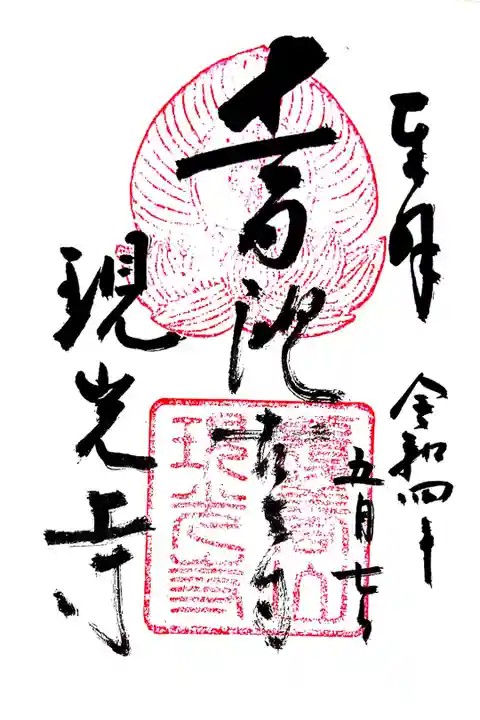 奉拝
令和四年
五月七日
十一面観世音
現光寺